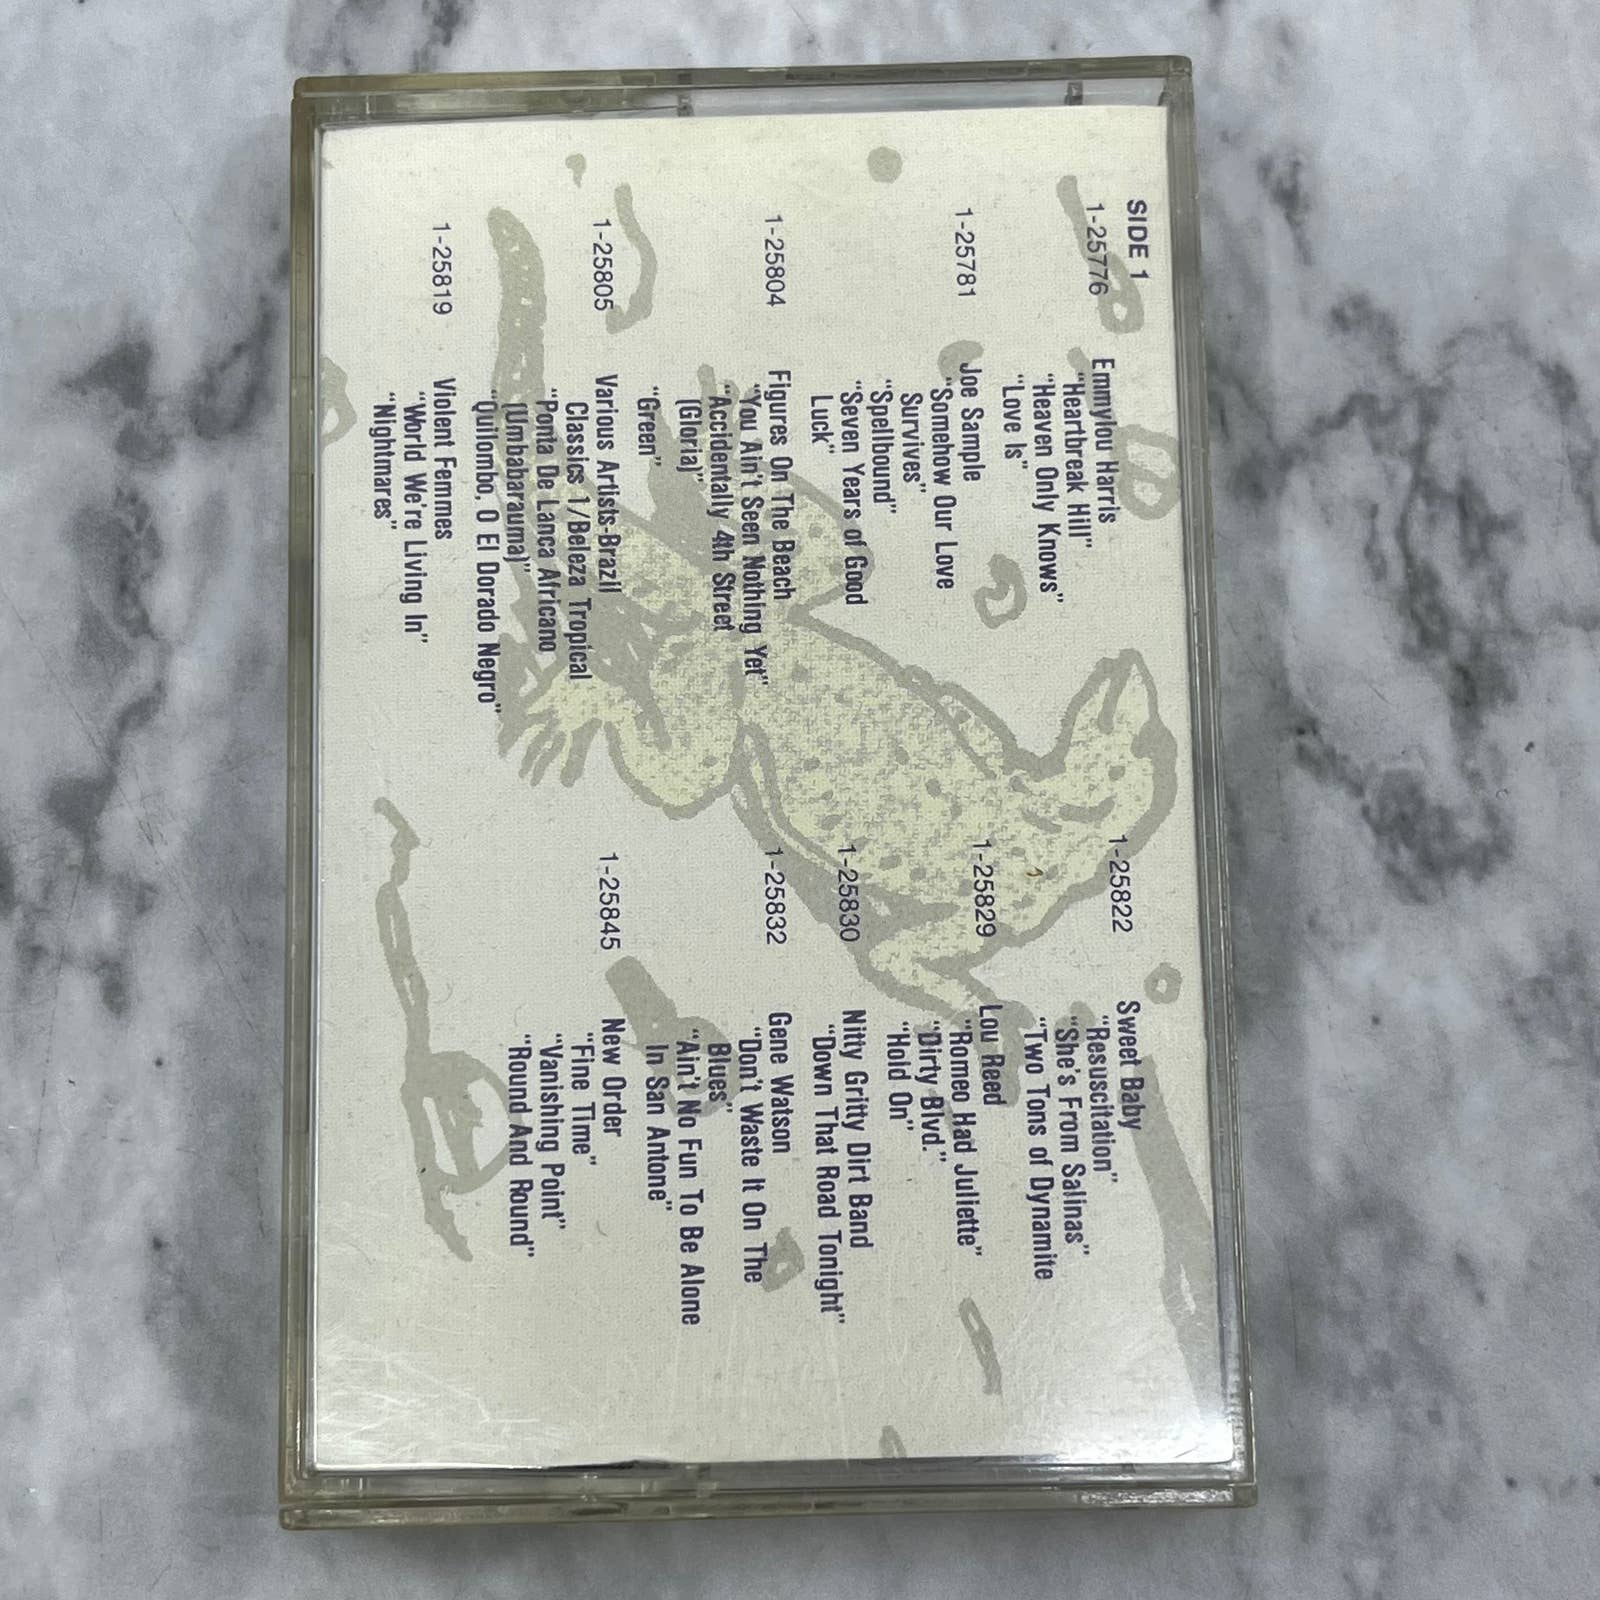 SIDE 1
1-25776 Emmylou Harris
"Heartbreak Hill"
"Heaven Only Knows"
"Love Is"
1-25781 Joe Sample
"Somehow Our Love
Survives"
"Spellbound"
"Seven Years of Good
Luck"
1-25804 Figures On The Beach
"You Ain't Seen Nothing Yet"
"Accidentally 4th Street
(Gloria)"
"Green"
1-25805 Various Artists-Brazil
Classics 1/Beleza Tropical
"Ponta De Lanca Africano
(Umbabarauma)"
"Quilombo, O El Dorado Negro"
1-25819 Violent Femmes
"World We're Living In"
"Nightmares"
1-25822 Sweet Baby
"Resuscitation"
"She's From Salinas"
"Two Tons of Dynamite
1-25829 Lou Reed
"Romeo Had Juliette"
"Dirty Blvd."
"Hold On"
1-25830 Nitty Gritty Dirt Band
"Down That Road Tonight"
1-25832 Gene Watson
"Don't Waste It On The
Blues"
"Ain't No Fun To Be Alone
In San Antone"
1-25845 New Order
"Fine Time"
"Vanishing Point"
"Round And Round"